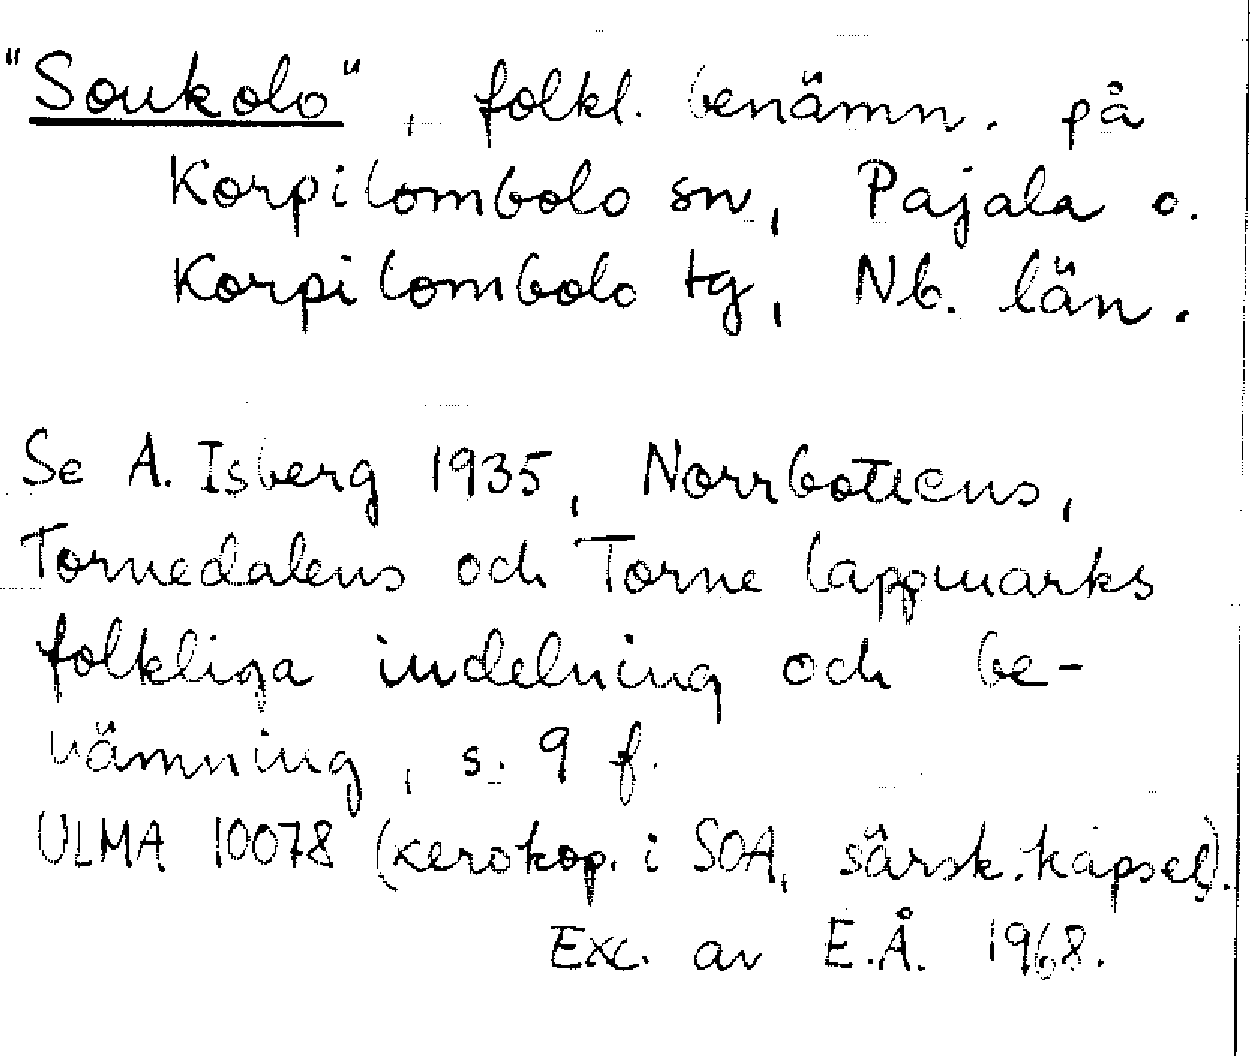 "Soukolo", folkl. benämn. på
Korpilombolo sn, Pajala o.
Korpilombolo tg, Nb. län.
Se A. Isberg 1935, Norrbottens,
Tornedalens och Torne lappmarks
folkliga indelning och be-
nämning, s. 9 f.
ULMA 10078 (xerokop. i SOA, särsk. kapsel).
Exc. av E.Å. 1968.